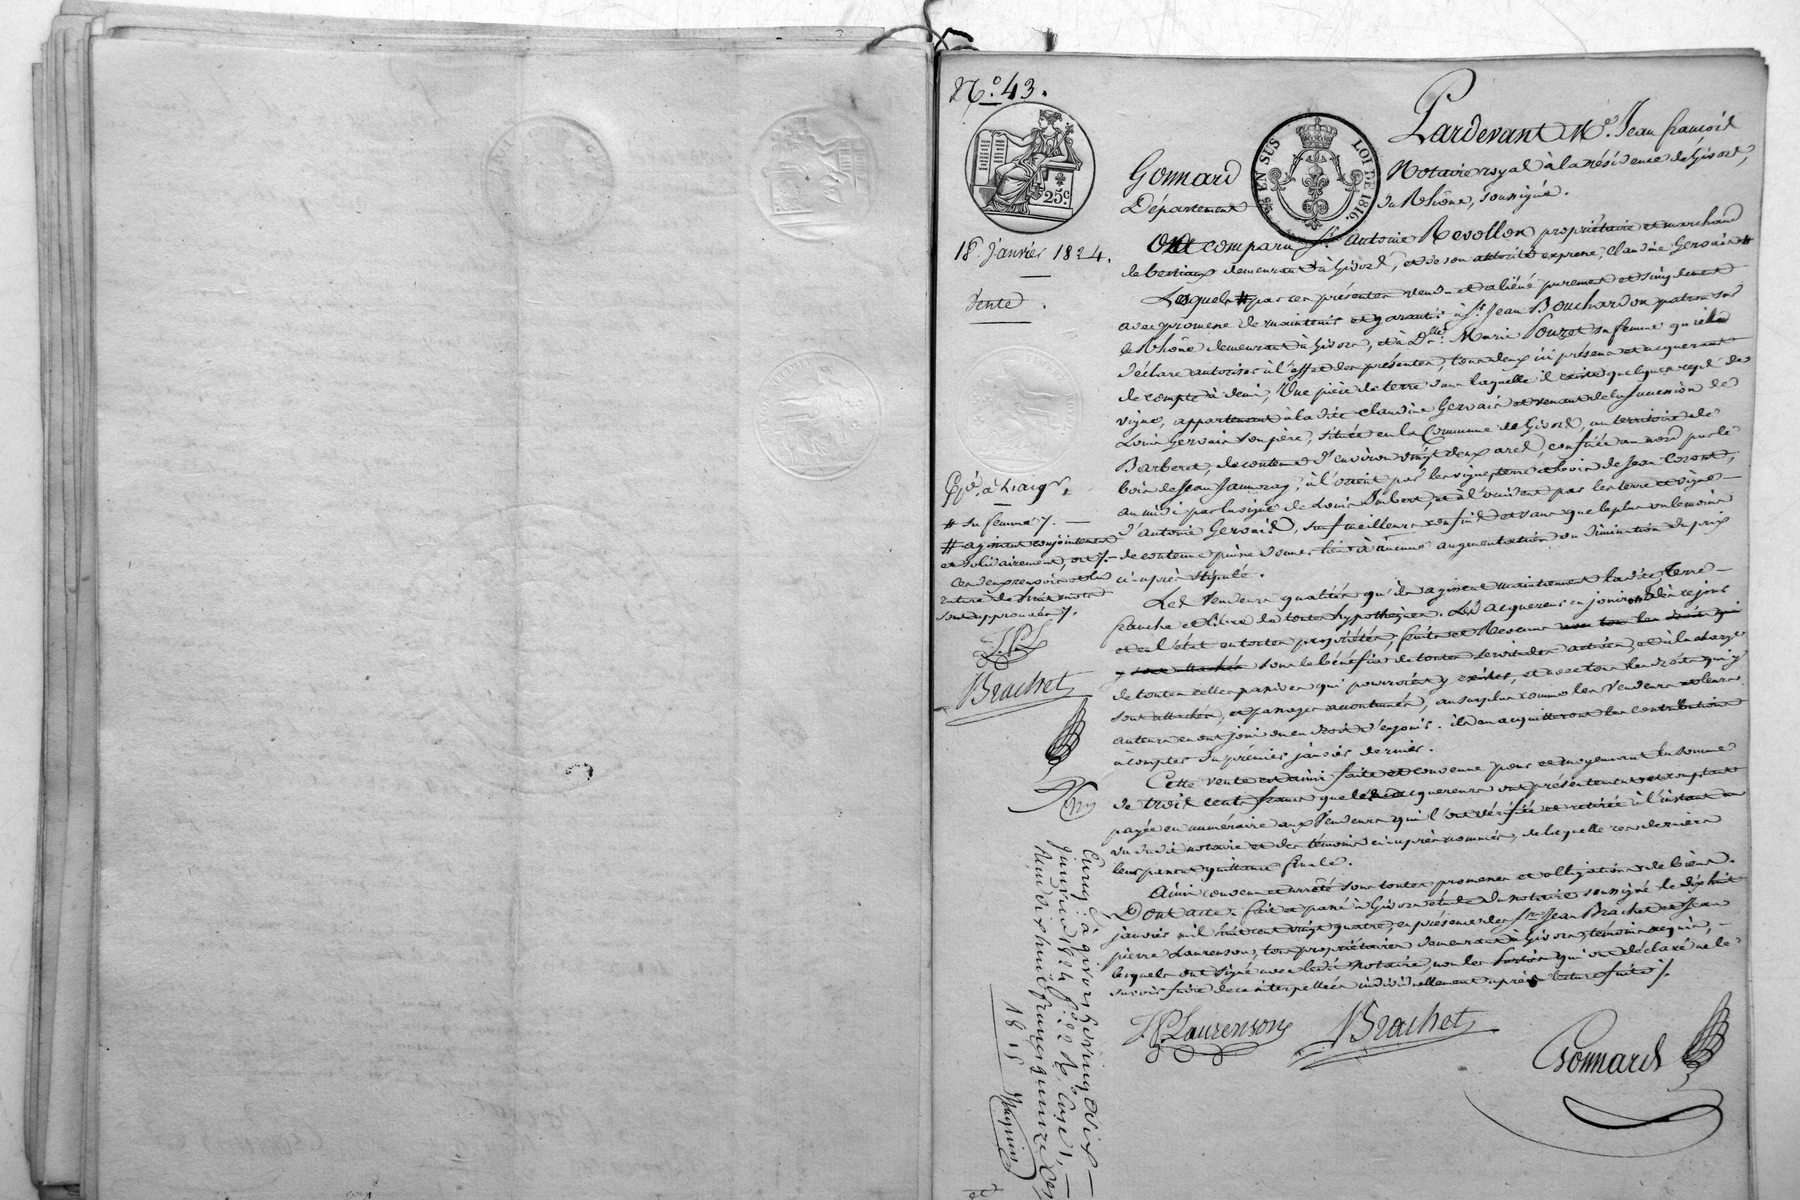 N.o 43.
Pardevant M.e Jean François
Gonnard Notaire royal à la résidence de Givors,
Département du Rhône, soussigné.
25c.
EN SUS LOI DE 1816.
18 Janvier 1824.
Vente.
Ont comparu S.r Antoine Revollon propriétaire et marchand
de bestiaux demeurant à Givors, et de son autorité expresse, Claudine Gervais #
Lesquels # par ces présentes vend et aliéné purement et simplement
avec promesse de maintenir et garantir à S.r Jean Bouchardon patron sur
le Rhône demeurant à Givors, et à D.lle Marie Pouzet sa femme qu'il
déclare autoriser à l'effet des présentes, tous deux ici présens et acquerant
de compte à demi, Une pièce de terre dans laquelle il existe quelques ceps de
vigne, appartenant à la dite Claudine Gervais et venant de la succession de
Louis Gervais son père, située en la Commune de Givors, au territoire de
Barberet, de contenue d'environ vingt deux ares, confinée au nord par le
bois de Jean Jaumeray, à l'orient par les vigne, terre et bois de Jean Coront,
au midi par la vigne de Louis Imbert, et à l'occident par les terre et vigne
d'Antoine Gervais, sauf meilleurs confins et sans que le plus ou le moins
de contenue puisse donner lieu à aucune augmentation ou diminution du prix
ci-après stipulé.
# sa femme /.
# agissant conjointement
et solidairement, ont /.
ces deux renvois et la
rature de huit mots
sont approuvés /.
J.P.L
Brachet
Les Vendeurs qualités qu'ils agissent maintiennent la dite Terre
franche et libre de toutes hypothèques. Les acquereurs en jouiront dès ce jour
et en l'état en toutes propriétés, fruits et Revenus avec tous les droits qui
y sont attachés sous le bénéfice de toutes servitudes actives, et à la charge
de toutes celles passives qui pourroient y exister, et avec tous les droits qui y
sont attachés, et passages accoutumés, au surplus comme les Vendeurs et leurs
auteurs en ont joui ou eu droit d'en jouir. ils en acquitteront les contributions
à compter du premier janvier dernier.
Cette vente est ainsi faite et convenue pour et moyennant la somme
de trois cents francs que les acquereurs ont présentement et comptant
payée en numéraire aux Vendeurs qui l'ont vérifiée et retirée à l'instant au
vu du dit notaire et des témoins ci-après nommés, de laquelle ces derniers
leur passent quittance finale.
Ainsi convenu et arrêté sous toutes promesses et obligations de biens.
Dont acte: fait et passé à Givors étude du notaire soussigné le dix huit
janvier mil huit cent vingt quatre, en présence des S.rs Jean Brachet et Jean
pierre Laurenson, tous propriétaires demeurant à Givors, témoins requis,
lesquels ont signé avec le dit notaire, non les parties qui ont déclaré ne le
savoir faire de ce interpellées individuellement après lecture faite /.
J.P. Laurenson Brachet
Gonnard
Enreg. à givors le vingt six
janvier 1824 f.o 22 R.o Case 1,
Reçu dix huit francs quinze c.es
18 15
Magnin